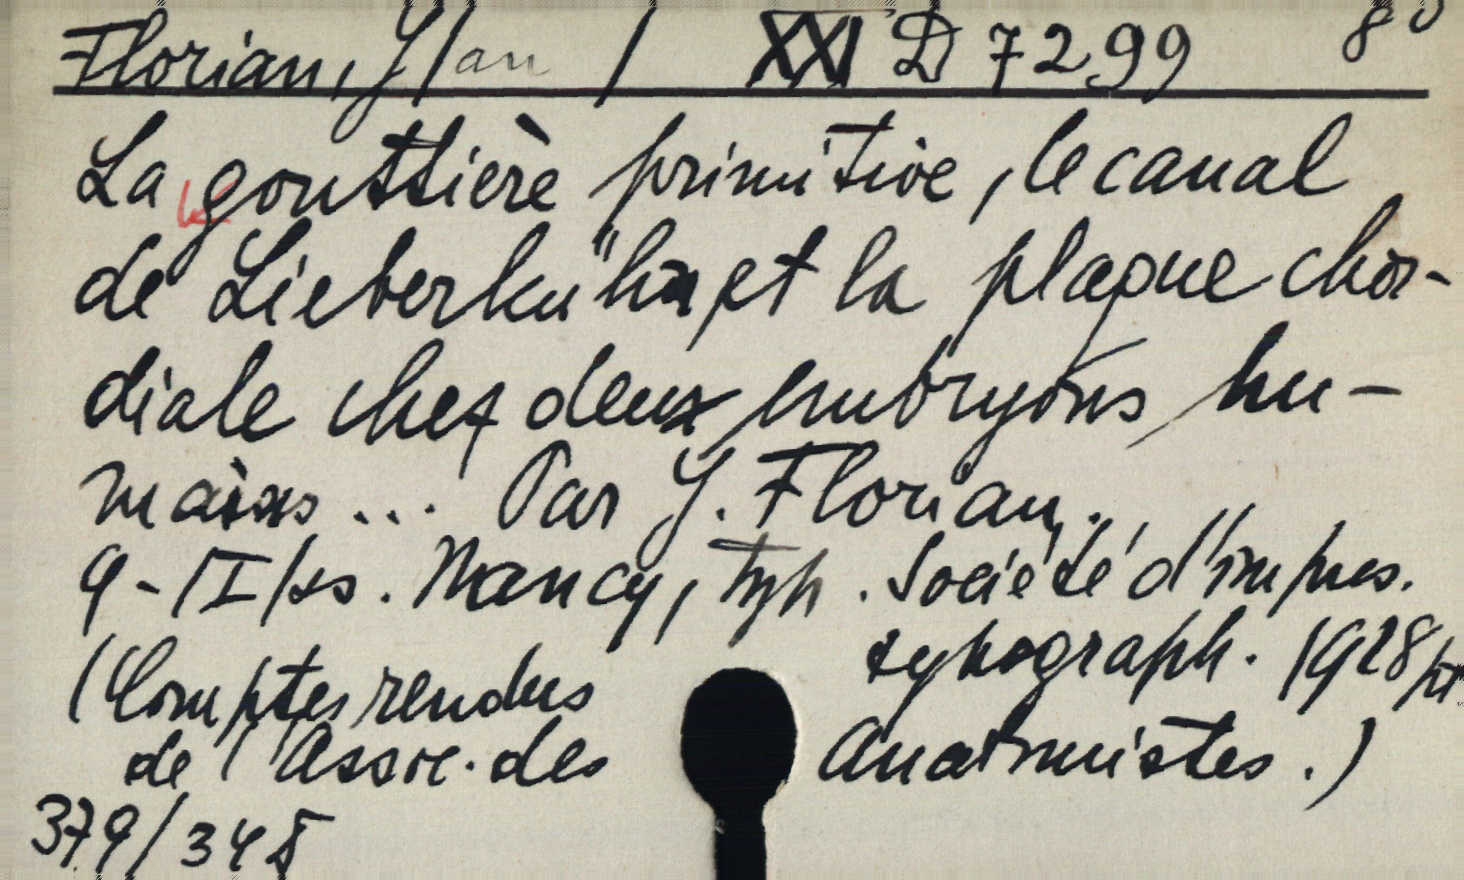 Florian, J/an / XXI D 7299 8°
La gouttière primitive, le canal
de Lieberkühn et la plaque chor-
diale chez deux embryons hu-
mains ... Par J. Florian.
9-/I/ss. Nancy, typ. Société d'impres.
typograph. 1928
(Comptes rendus
de l'Assoc. des Anatomistes.)
379/34